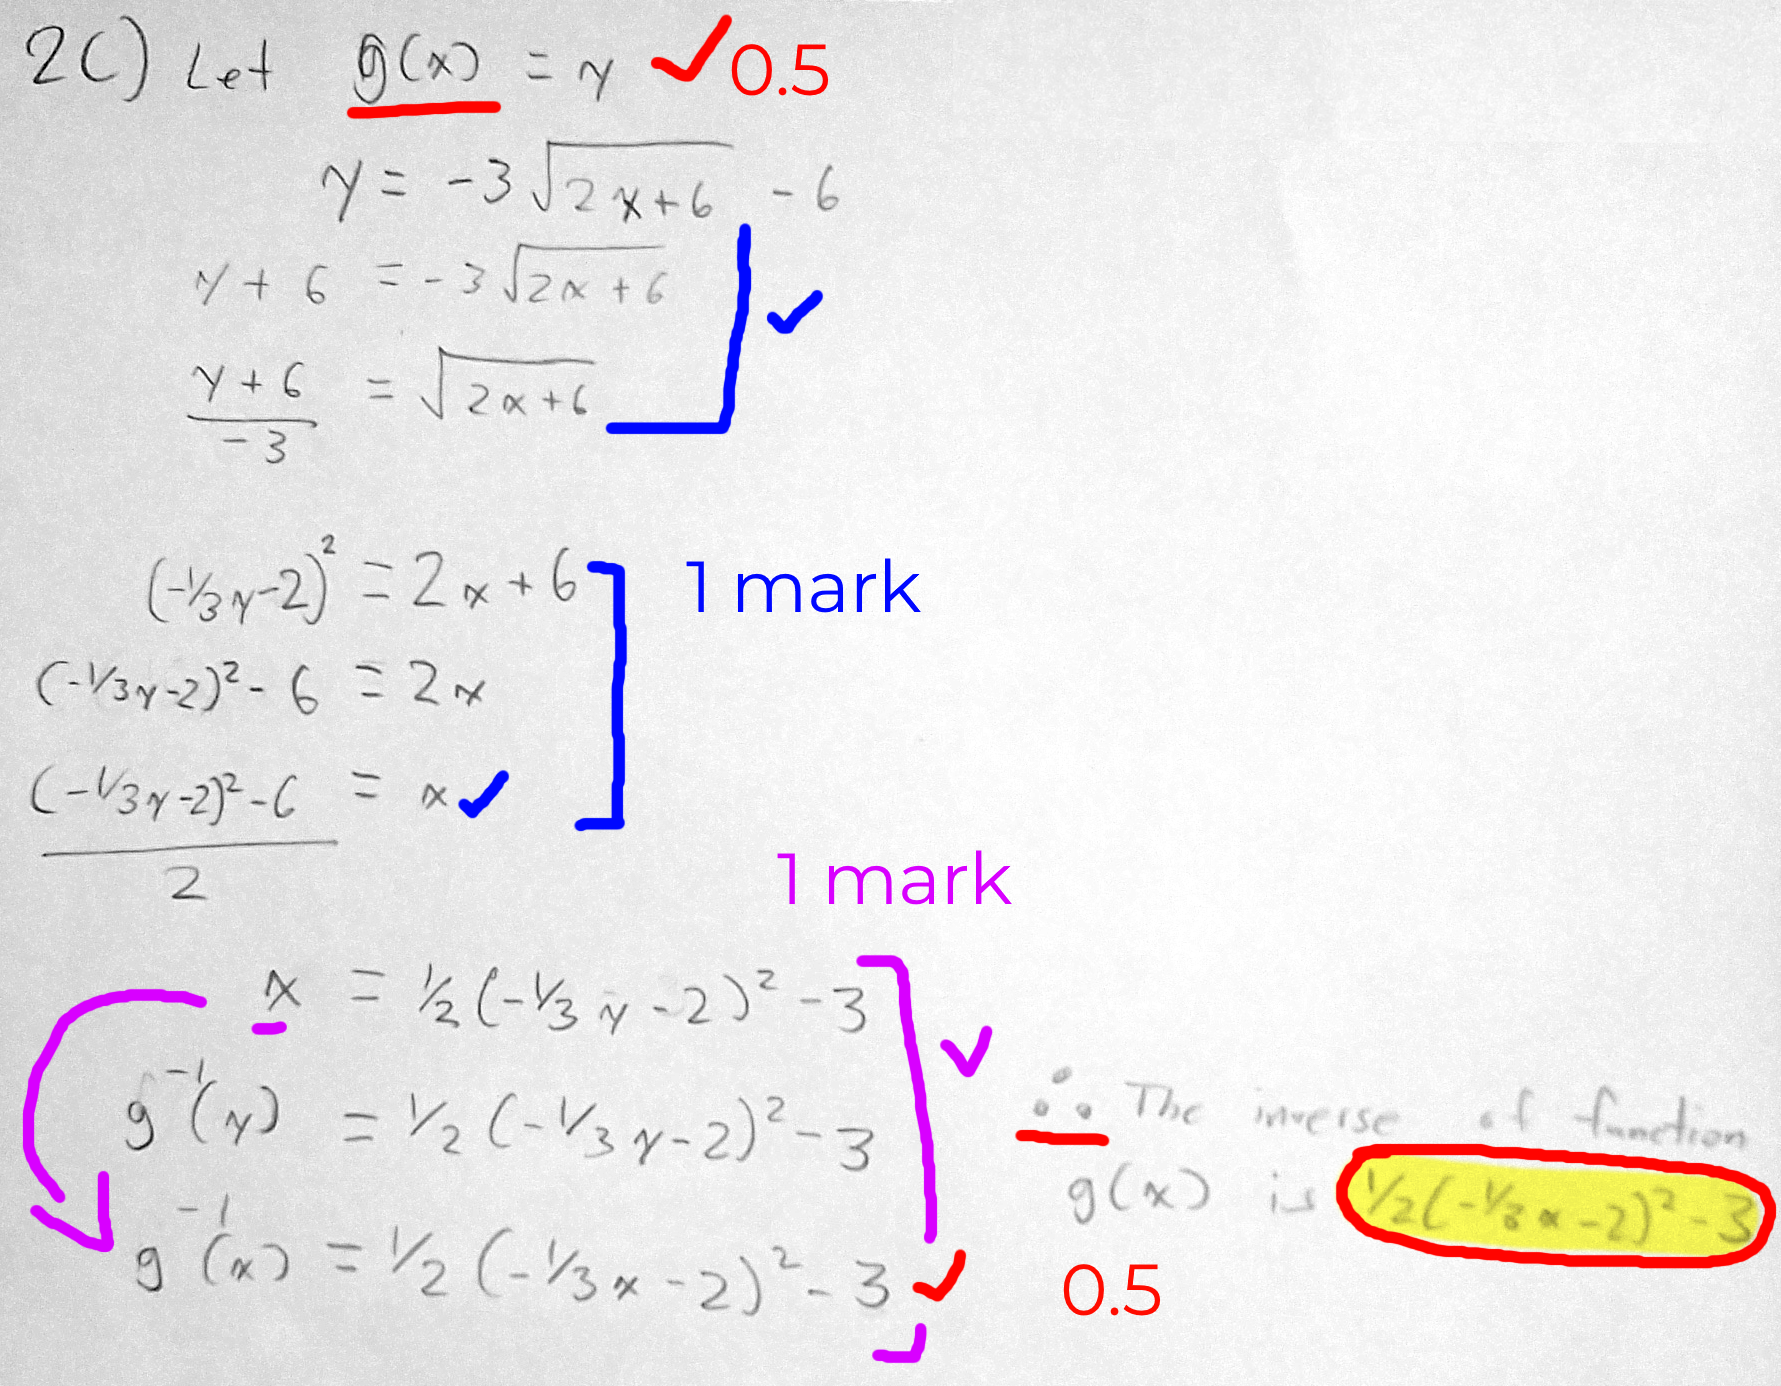 2C) Let g(x) = y ✓ 0.5
y = -3√(2x+6) - 6
y + 6 = -3√(2x+6) ✓
(y+6)/-3 = √(2x+6)
(-1/3y-2)² = 2x+6 1 mark
(-1/3y-2)² - 6 = 2x
((-1/3y-2)²-6)/2 = x ✓
1 mark
x = 1/2(-1/3y-2)²-3
g⁻¹(y) = 1/2(-1/3y-2)²-3 ✓
g⁻¹(x) = 1/2(-1/3x-2)²-3 ✓ 0.5
∴ The inverse of function
g(x) is 1/2(-1/3x-2)²-3